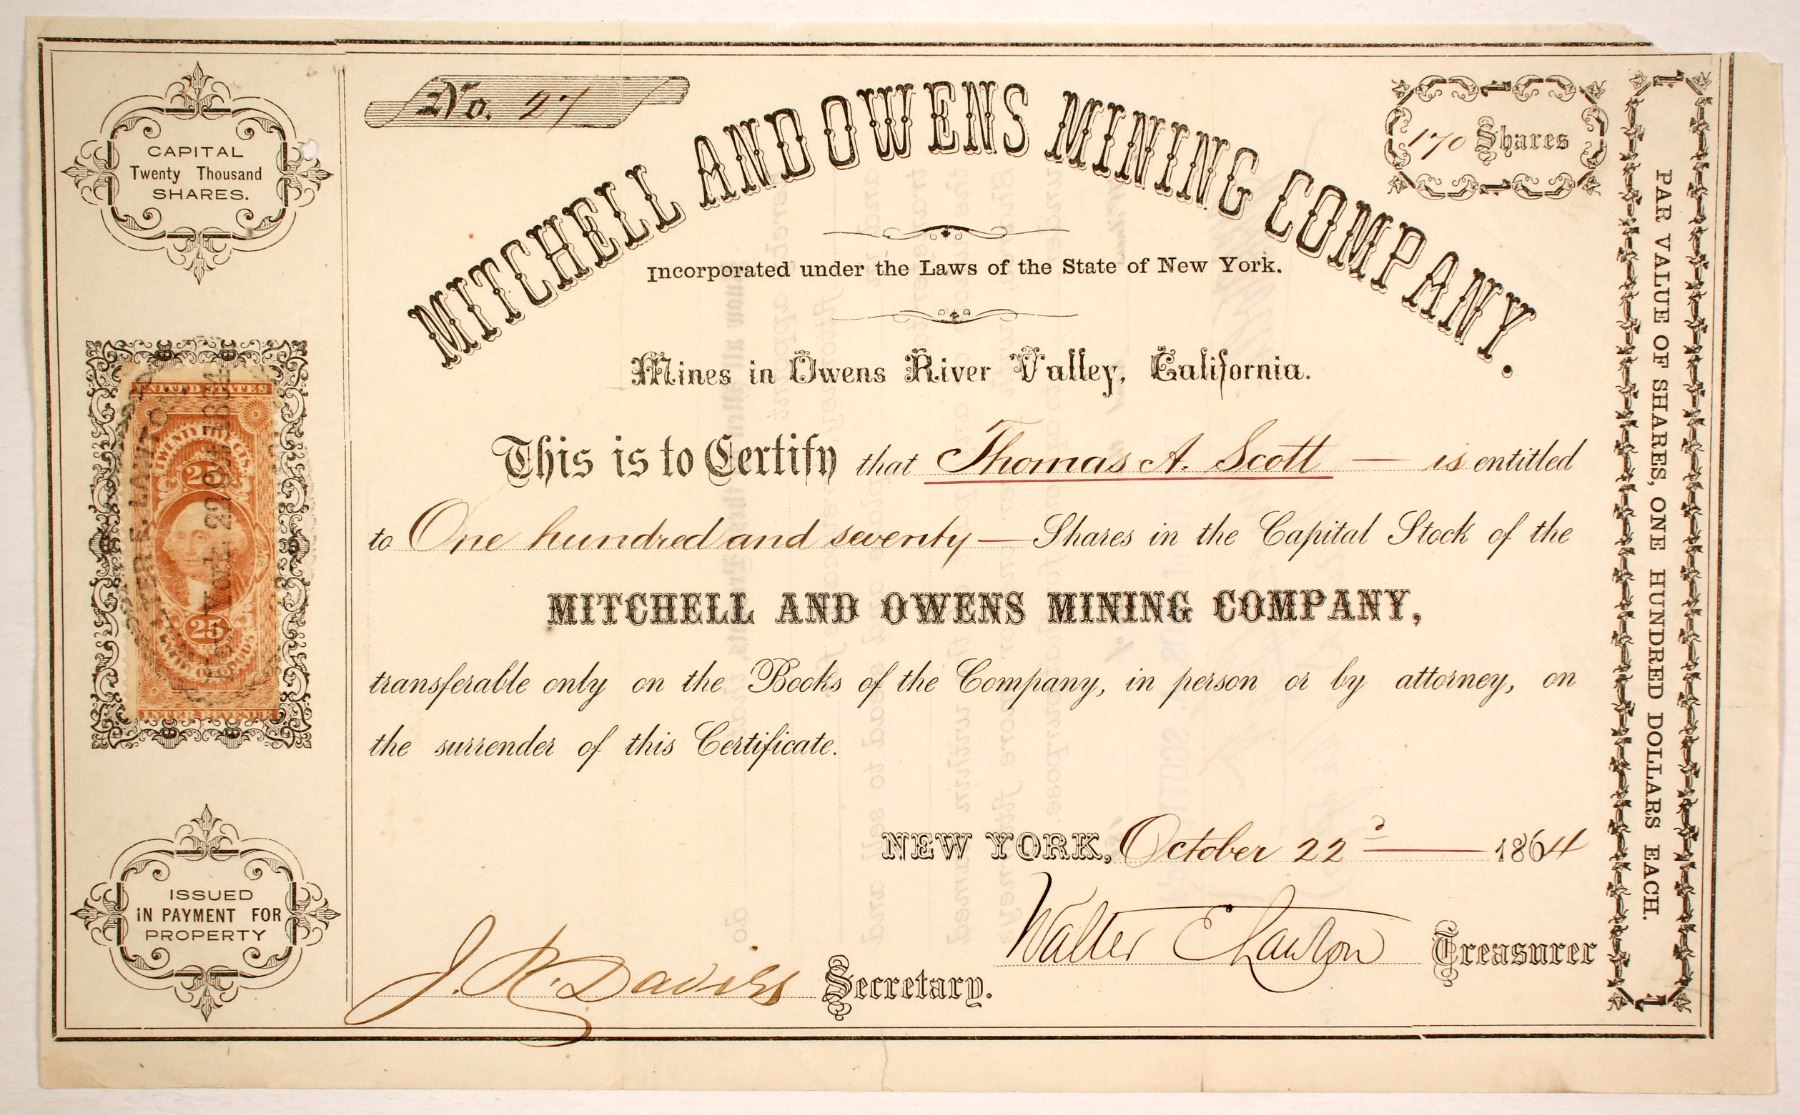 No. 27
MITCHELL AND OWENS MINING COMPANY.
170 Shares
CAPITAL
Twenty Thousand
SHARES.
Incorporated under the Laws of the State of New York.
Mines in Owens River Valley, California.
This is to Certify that Thomas A. Scott — is entitled
to One hundred and seventy — Shares in the Capital Stock of the
MITCHELL AND OWENS MINING COMPANY,
transferable only on the Books of the Company, in person or by attorney, on
the surrender of this Certificate.
NEW YORK, October 22d — 1864
J. R. Davies Secretary.
Walter E Lawton Treasurer
UNITED STATES
TWENTY FIVE CTS.
25
25
INTER REVENUE
WALTER E. LAWTON
OCT 22 1864
ISSUED
IN PAYMENT FOR
PROPERTY
1
PAR VALUE OF SHARES, ONE HUNDRED DOLLARS EACH.
1